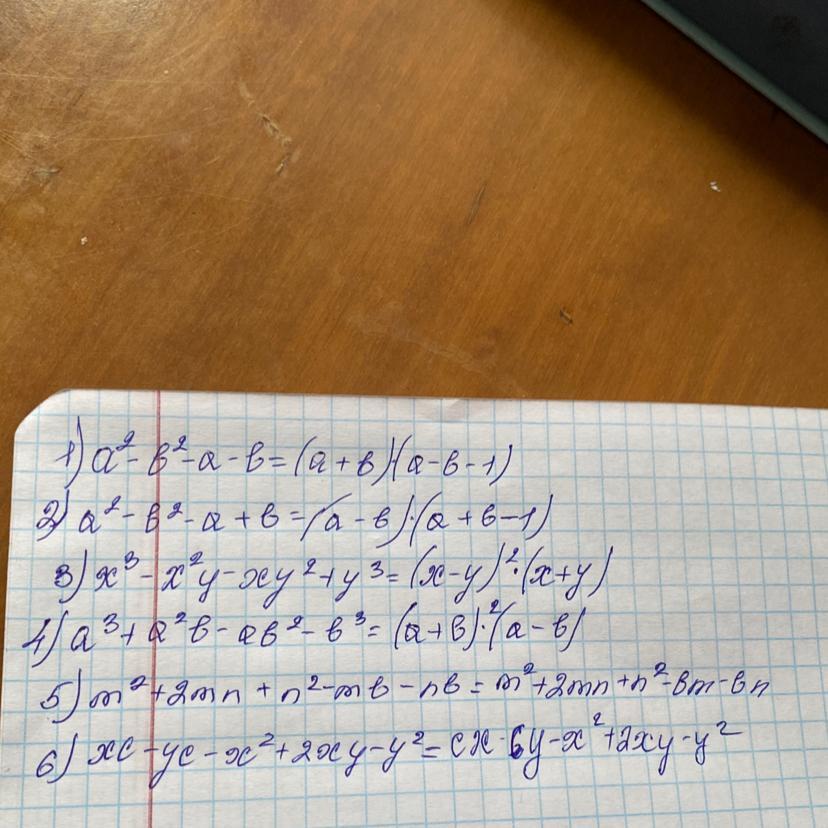 1) a² - в² - a - в = (a + в)·(a - в - 1)
2) a² - в² - a + в = (a - в)·(a + в - 1)
3) x³ - x²y - xy² + y³ = (x - y)²·(x + y)
4) a³ + a²в - aв² - в³ = (a + в)·²(a - в)
5) m² + 2mn + n² - mв - nв = m² + 2mn + n² - вm - вn
6) xc - yc - x² + 2xy - y² = cx - cy - x² + 2xy - y²